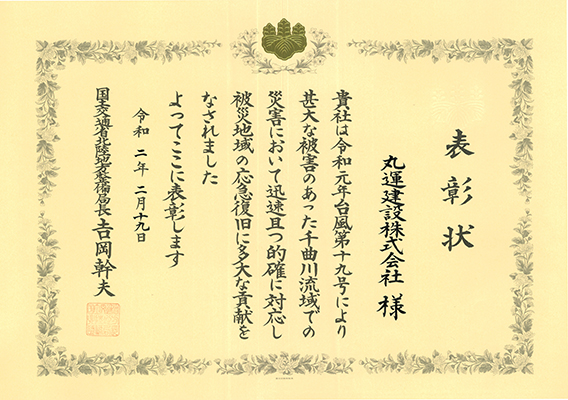 表彰状
丸運建設株式会社 様
貴社は令和元年台風第十九号により
甚大な被害のあった千曲川流域での
災害において迅速且つ的確に対応し
被災地域の応急復旧に多大な貢献を
なされました
よってここに表彰します
令和 二年 二月十九日
国土交通省北陸地方整備局長 吉岡幹夫